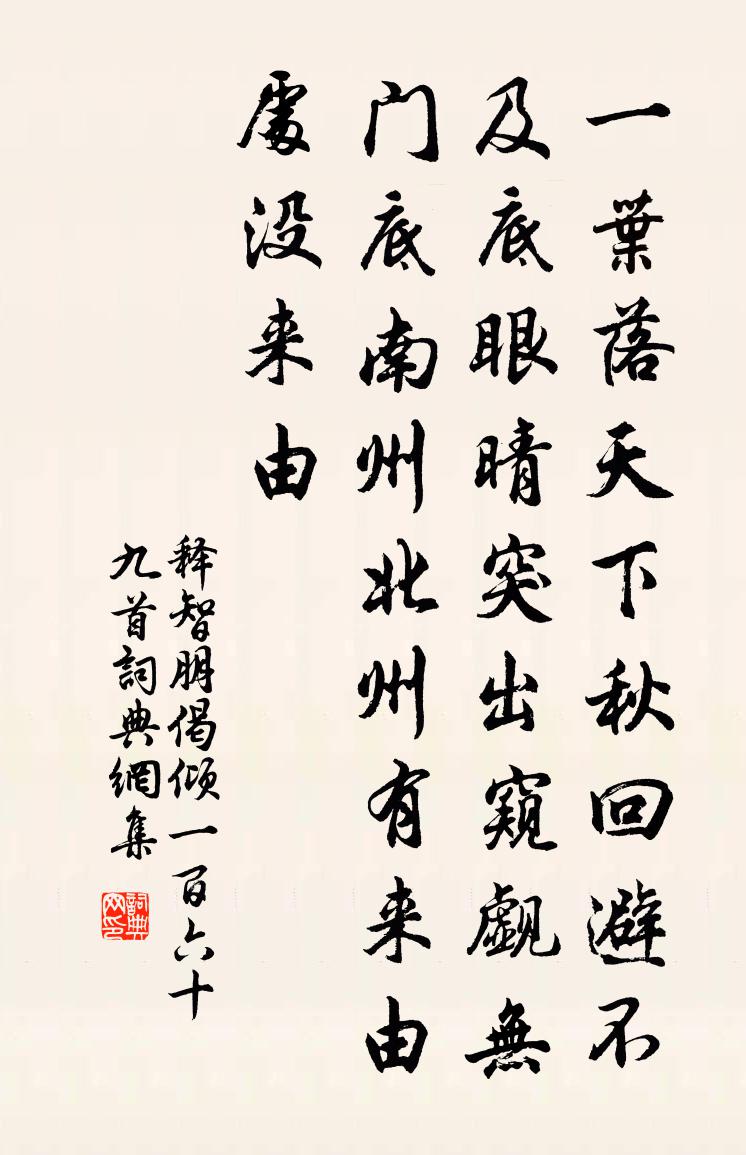 一葉落天下秋回避不
及底眼晴突出窺覷無
门底南州北州有来由
處没来由
释智朋偈傾一百六十
九首詞典網集
詞典网印